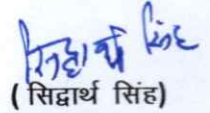 सिद्धार्थ सिंह
( सिद्वार्थ सिंह)